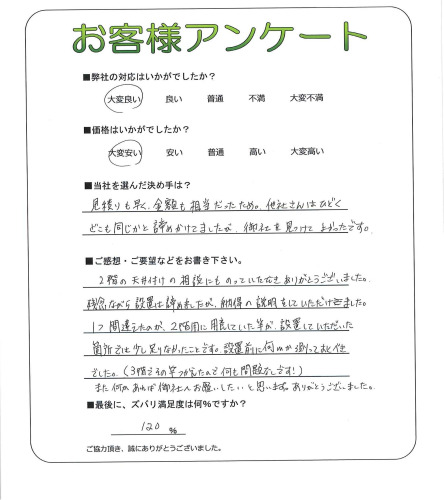 お客様アンケート
■弊社の対応はいかがでしたか?
大変良い 良い 普通 不満 大変不満
■価格はいかがでしたか?
大変安い 安い 普通 高い 大変高い
■当社を選んだ決め手は?
見積りも早く、金額も相当だったため。他社さんはひどく
どこも同じかと諦めかけてましたが、御社を見つけてよかったです。
■ご感想・ご要望などをお書き下さい。
2階の天井付けの相談にものっていただきありがとうございました。
残念ながら設置は諦めましたが、納得の説明をしていただけました。
1つ間違えたのが、2階用に用意していた竿が、設置していただいた
箇所では少し足りなかったことです。設置前に何cmか測っておくべき
でした。(3階はその竿つかえたので何も問題なしです!)
また何かあれば御社にお願いしたいと思います。ありがとうございました。
■最後に、ズバリ満足度は何%ですか?
120 %
ご協力頂き、誠にありがとうございました。